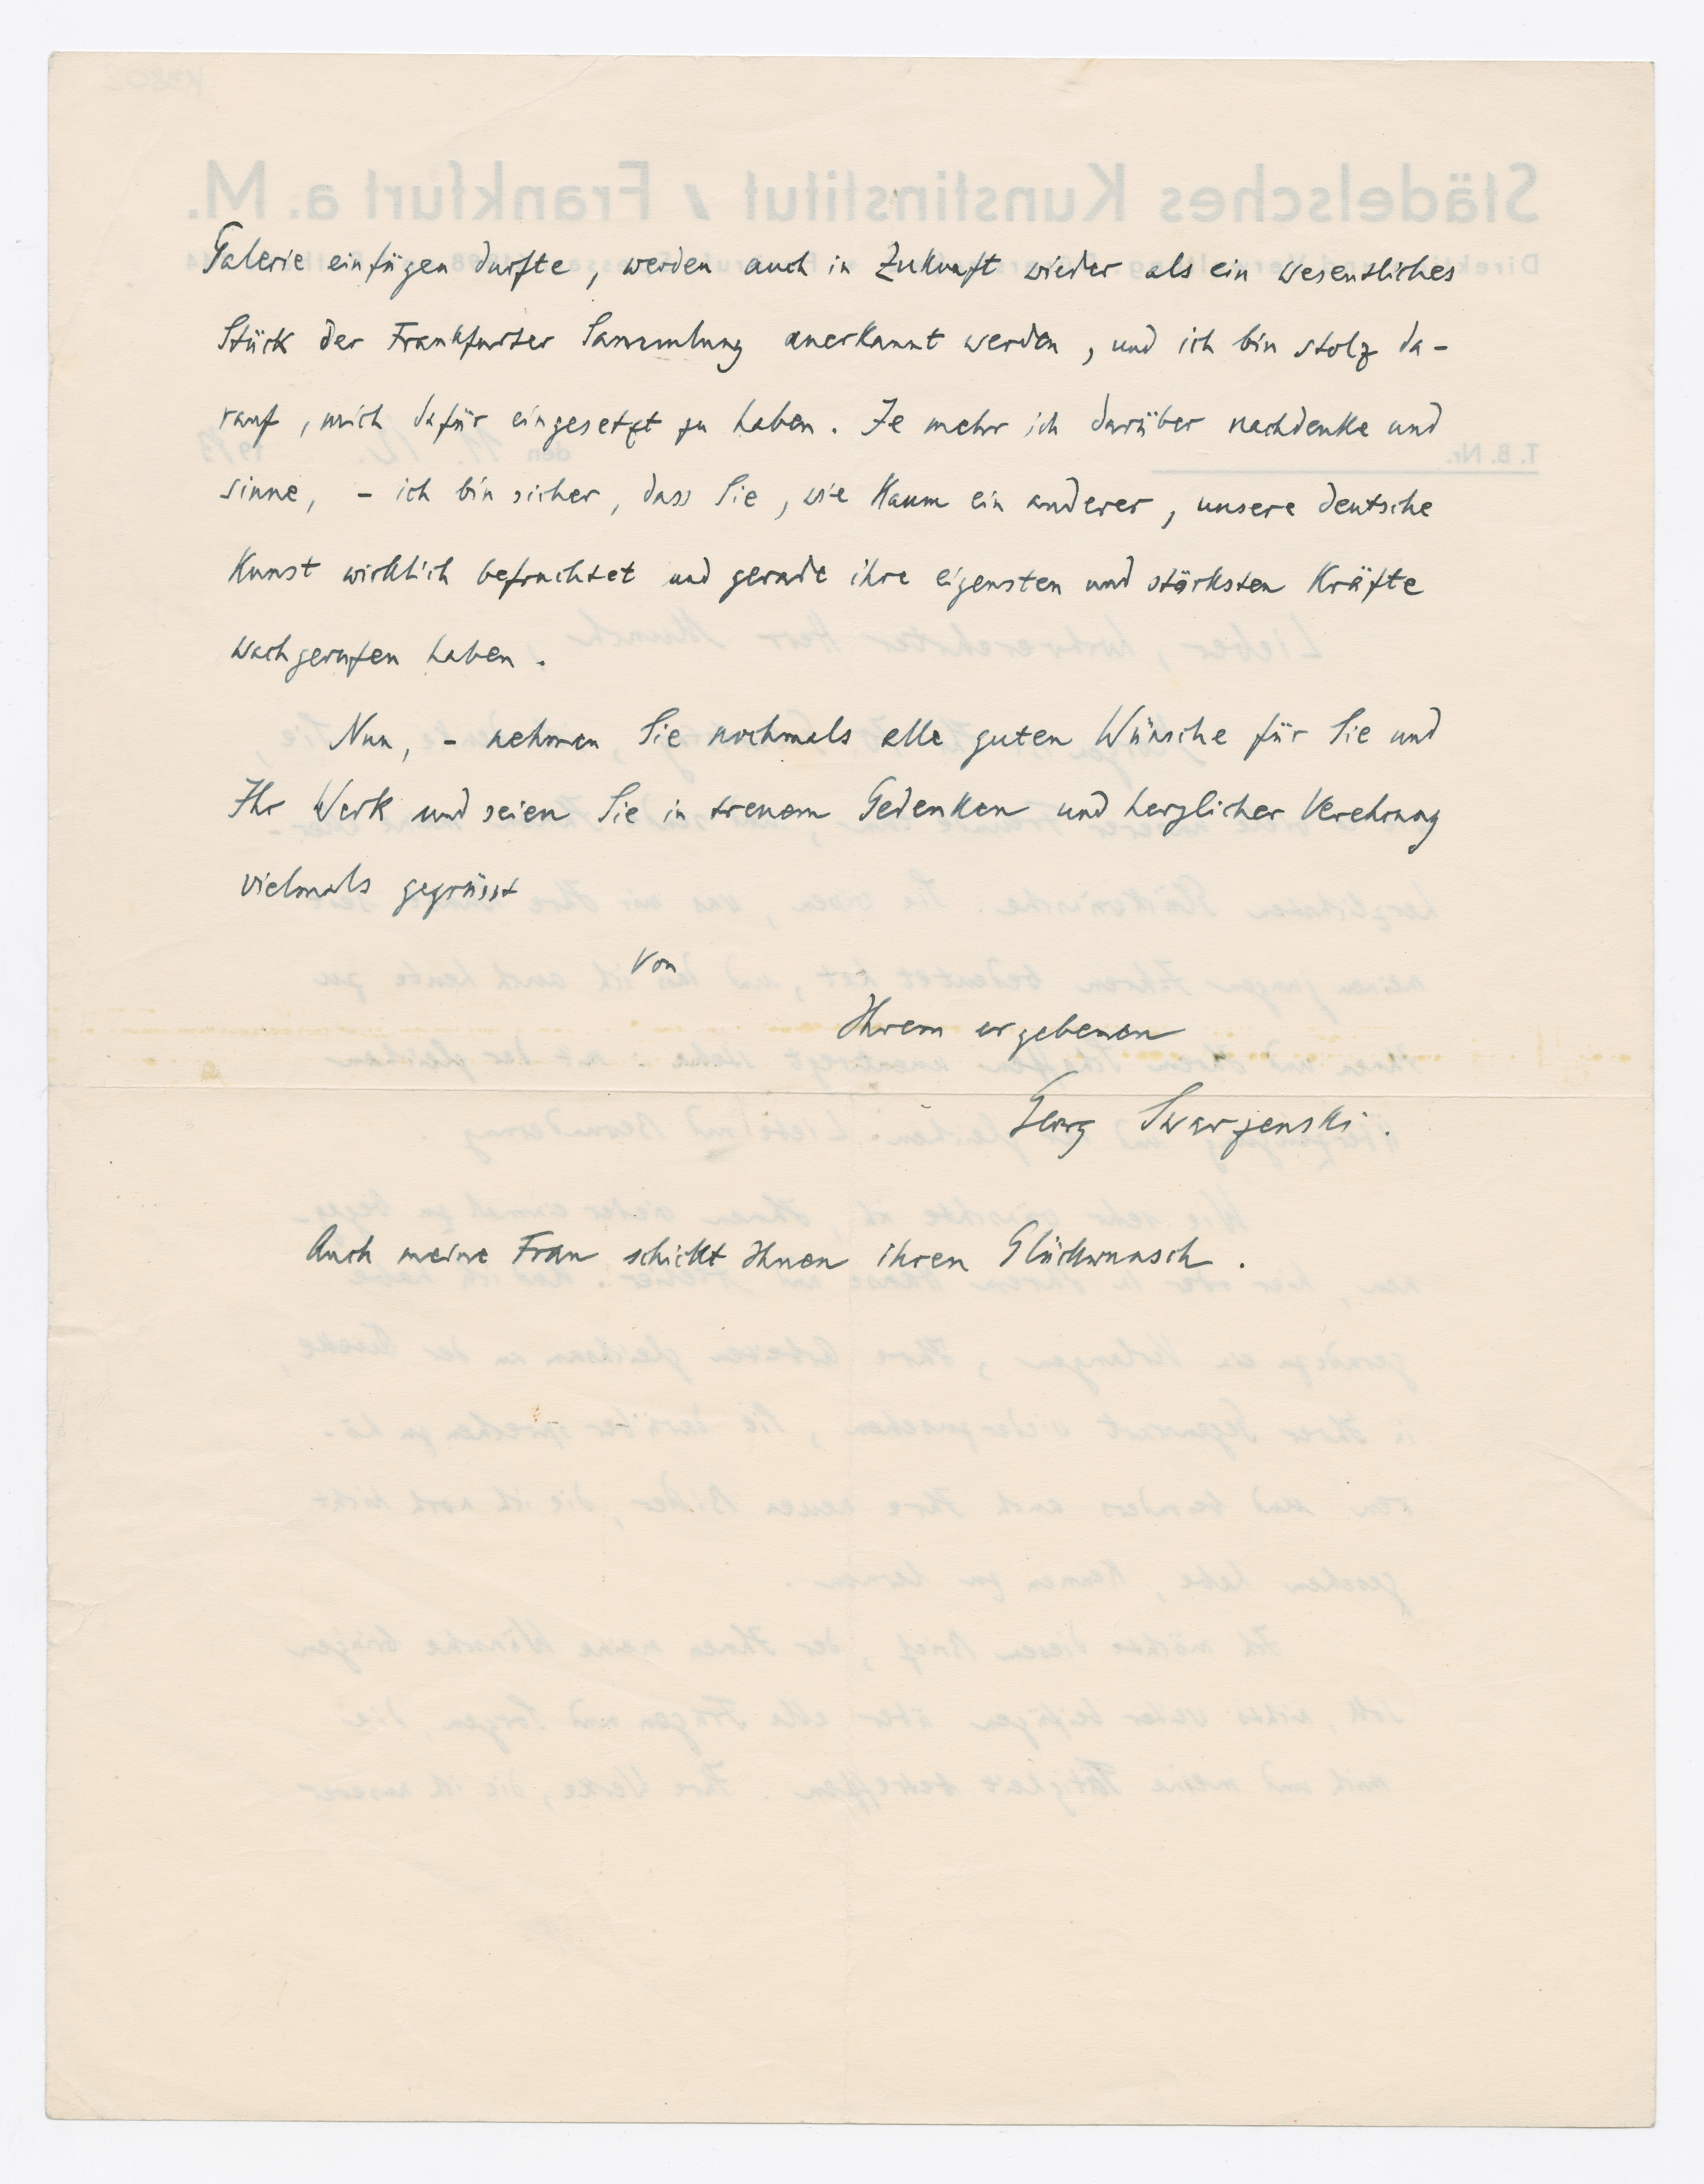 Galerie einfügen durfte, werden auch in Zukunft wieder als ein wesentliches
Stück der Frankfurter Sammlung anerkannt werden, und ich bin stolz da-
rauf, mich dafür eingesetzt zu haben. Je mehr ich darüber nachdenke und
sinne, - ich bin sicher, dass Sie, wie kaum ein anderer, unsere deutsche
Kunst wirklich befruchtet und gerade ihre eigensten und stärksten Kräfte
wachgerufen haben.
Nun, - nehmen Sie nochmals alle guten Wünsche für Sie und
Ihr Werk und seien Sie in treuem Gedenken und herzlicher Verehrung
vielmals gegrüsst
von
Ihrem ergebenen
Georg Swarzenski.
Auch meine Frau schickt Ihnen ihren Glückwunsch.